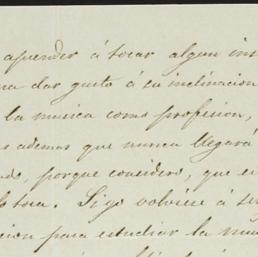 aprender á tocar algun ins
na dar gusto á su inclinacion
la musica como profesion,
s ademas que nunca llegará
do, porque considero, que e
toca. Si yo volviese á se
cion para estudiar la mu